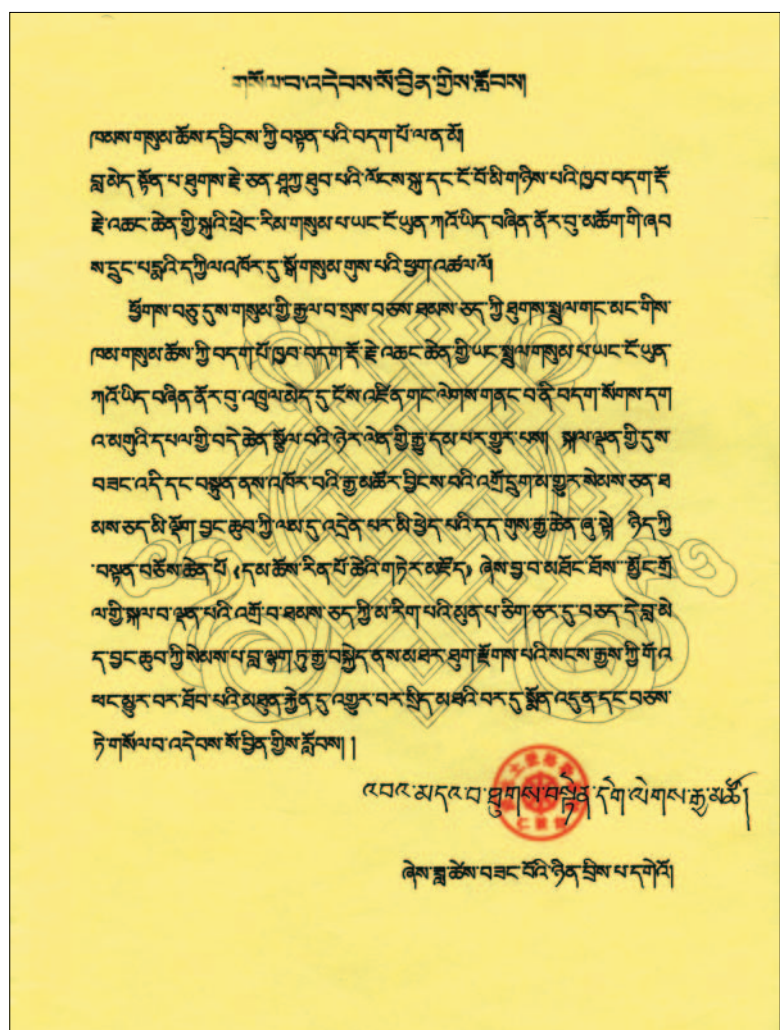 གསོལ་བ་འདེབས་སོ་བྱིན་གྱིས་རློབས།
ཁམས་གསུམ་ཆོས་དབྱིངས་ཀྱི་བསྟན་པའི་བདག་པོ་ལ་ན་མོ།
བླ་མེད་སྟོན་པ་ཐུགས་རྗེ་ཅན་ཤཱཀྱ་ཐུབ་པའི་ལོངས་སྐུ་དང་ངོ་བོ་མི་གཉིས་པའི་ཁྱབ་བདག་རྡོ་
རྗེ་འཆང་ཆེན་གྱི་སྐུའི་ཕྲེང་རིམ་གསུམ་པ་ཡང་ངོ་ཡུན་ཀའོ་ཡིད་བཞིན་ནོར་བུ་མཆོག་གི་ཞབ
ས་དྲུང་པདྨའི་དཀྱིལ་འཁོར་དུ་སྒོ་གསུམ་གུས་པའི་ཕྱག་འཚལ་ལོ།
ཕྱོགས་བཅུ་དུས་གསུམ་གྱི་རྒྱལ་བ་སྲས་བཅས་ཐམས་ཅད་ཀྱི་ཐུགས་སྤྲུལ་གང་མང་གིས་
ཁམ་གསུམ་ཆོས་ཀྱི་བདག་པོ་ཁྱབ་བདག་རྡོ་རྗེ་འཆང་ཆེན་གྱི་ཡང་སྤྲུལ་གསུམ་པ་ཡང་ངོ་ཡུན་
ཀའོ་ཡིད་བཞིན་ནོར་བུ་འཁྲུལ་མེད་དུ་ངོས་འཛིན་གང་ལེགས་གནང་བ་ནི་བདག་སོགས་དག
འ་མགུའི་དཔལ་གྱི་བདེ་ཆེན་སྩོལ་བའི་ཉེར་ལེན་གྱི་རྒྱུ་དམ་པར་གྱུར་པས། སྐལ་ལྡན་གྱི་དུས་
བཟང་འདི་དང་བསྟུན་ནས་འཁོར་བའི་རྒྱ་མཚོར་བྱིངས་བའི་འགྲོ་དྲུག་མ་གྱུར་སེམས་ཅན་ཐ
མས་ཅད་མི་ལྡོག་བྱང་ཆུབ་ཀྱི་ལམ་དུ་འདྲེན་པར་མི་ཕྱེད་པའི་དད་གུས་རྒྱ་ཆེན་ཞུ་སྟེ། ཉིད་ཀྱི
་བསྟན་བཅོས་ཆེན་པོ 《དམ་ཆོས་རིན་པོ་ཆེའི་གཏེར་མཛོད》 ཞེས་བྱ་བ་མཐོང་ཐོས་མྱོང་གྲོ
ལ་གྱི་སྐལ་བ་ལྡན་པའི་འགྲོ་བ་ཐམས་ཅད་ཀྱི་མ་རིག་པའི་མུན་པ་ཅིག་ཅར་དུ་བཅད་དེ་བླ་མེ
ད་བྱང་ཆུབ་ཀྱི་སེམས་པ་བླ་ལྷག་ཏུ་རྒྱ་བསྐྱེད་ནས་མཐར་ཐུག་རྫོགས་པའི་སངས་རྒྱས་ཀྱི་གོ་འ
ཕང་མྱུར་བར་ཐོབ་པའི་མཐུན་རྐྱེན་དུ་འགྱུར་བར་སྲིད་མཐའི་བར་དུ་སྨོན་འདུན་དང་བཅས་
ཏེ་གསོལ་བ་འདེབས་སོ་བྱིན་གྱིས་རློབས། །
འབའ་མདའ་བ་ཐུགས་བསྟེན་དགེ་ལེགས་རྒྱ་མཚོ།
ཞེས་ཟླ་ཚེས་བཟང་པོའི་ཉིན་བྲིས་པ་དགེའོ།